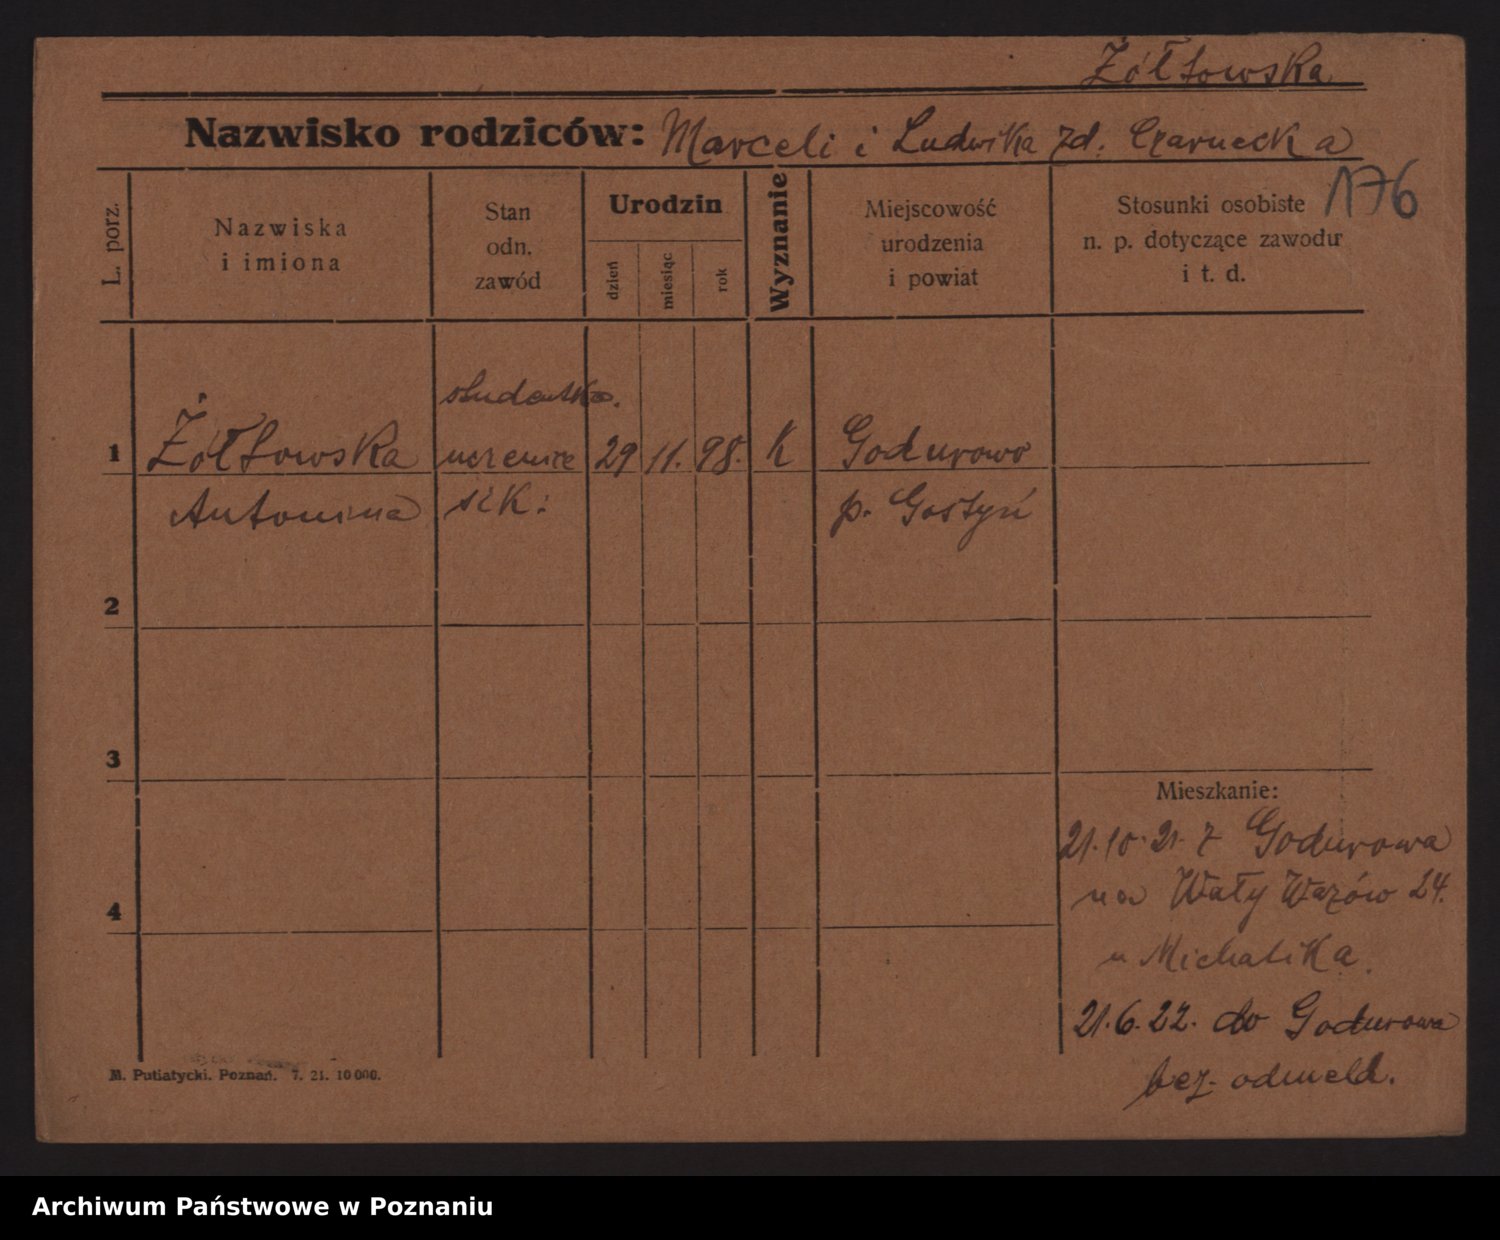 Żółtowska
Nazwisko rodziców: Marceli i Ludwika zd. Czarnecka
176
L. porz.
Nazwiska
i imiona
Stan
odn.
zawód
Urodzin
dzień
miesiąc
rok
Wyznanie
Miejscowość
urodzenia
i powiat
Stosunki osobiste
n. p. dotyczące zawodu
i t. d.
studentka.
1 Żółtowska uczenice 29 11. 98. K Godurowo
Antonina szk: p. Gostyń
2
3
Mieszkanie:
21.10.21. z Godurowa
na Wały Wazów 24.
4
u Michalika.
21.6.22. do Godurowa
bez odmeld.
M. Putiatycki. Poznań. 7. 21. 10000.
Archiwum Państwowe w Poznaniu